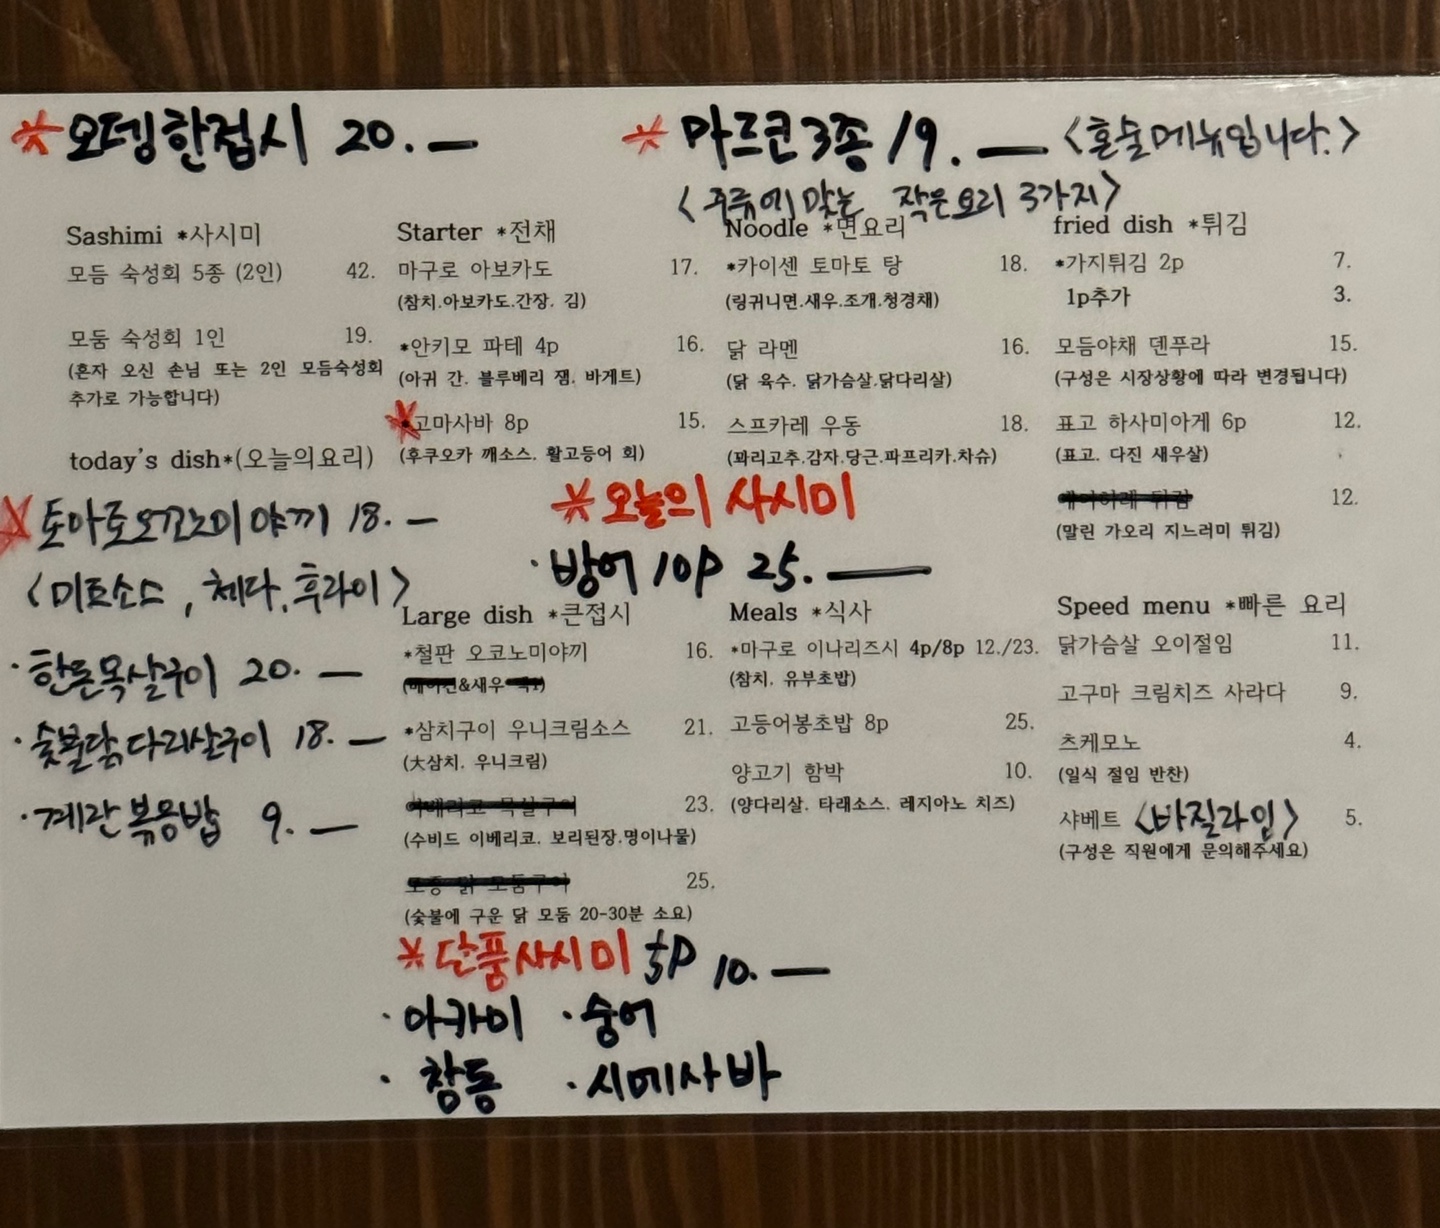 *오뎅한접시 20.—
*마르코3종 19.— <혼술메뉴입니다.>
<주류에 맞는 작은요리 3가지>
Sashimi *사시미
모듬 숙성회 5종 (2인) 42.
모둠 숙성회 1인 19.
(혼자 오신 손님 또는 2인 모듬숙성회
추가로 가능합니다)
today's dish*(오늘의요리)
*토마토오꼬노미야끼 18.—
<미트소스, 체다, 후라이>
·한돈목살구이 20.—
·숯불닭다리살구이 18.—
·계란볶음밥 9.—
Starter *전채
마구로 아보카도 17.
(참치.아보카도.간장. 김)
*안키모 파테 4p 16.
(아귀 간. 블루베리 잼. 바게트)
*고마사바 8p 15.
(후쿠오카 깨소스. 활고등어 회)
Noodle *면요리
*카이센 토마토 탕 18.
(링귀니면.새우.조개.청경채)
닭 라멘 16.
(닭 육수. 닭가슴살.닭다리살)
스프카레 우동 18.
(꽈리고추.감자.당근.파프리카.차슈)
fried dish *튀김
*가지튀김 2p 7.
1p추가 3.
모듬야채 덴푸라 15.
(구성은 시장상황에 따라 변경됩니다)
표고 하사미아게 6p 12.
(표고. 다진 새우살)
12.
(말린 가오리 지느러미 튀김)
*오늘의 사시미
·방어 10p 25.—
Large dish *큰접시
*철판 오코노미야끼 16.
&새우
*삼치구이 우니크림소스 21.
(大삼치. 우니크림)
23.
(수비드 이베리코. 보리된장.명이나물)
25.
(숯불에 구운 닭 모둠 20-30분 소요)
Meals *식사
*마구로 이나리즈시 4p/8p 12./23.
(참치. 유부초밥)
고등어봉초밥 8p 25.
양고기 함박 10.
(양다리살. 타래소스. 레지아노 치즈)
Speed menu *빠른 요리
닭가슴살 오이절임 11.
고구마 크림치즈 사라다 9.
츠케모노 4.
(일식 절임 반찬)
샤베트 <바질라임> 5.
(구성은 직원에게 문의해주세요)
*단품사시미 5p 10.—
·아카미 ·숭어
·참돔 ·시메사바